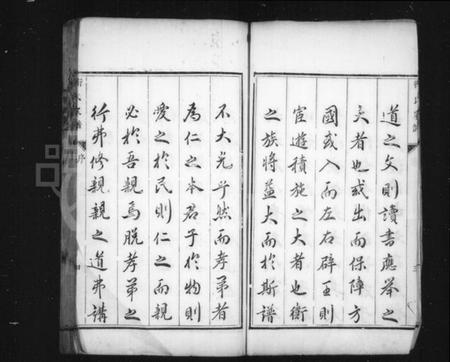 道之文則讀書應舉之
大者也或出而保障方
國或入而左右辟王則
宦遊積施之大者也衛
之族將益大而於斯譜
不大光乎然而孝弟者
為仁之本君子於物則
愛之於民則仁之而親
必於吾親焉脫孝弟之
行弗修親親之道弗講